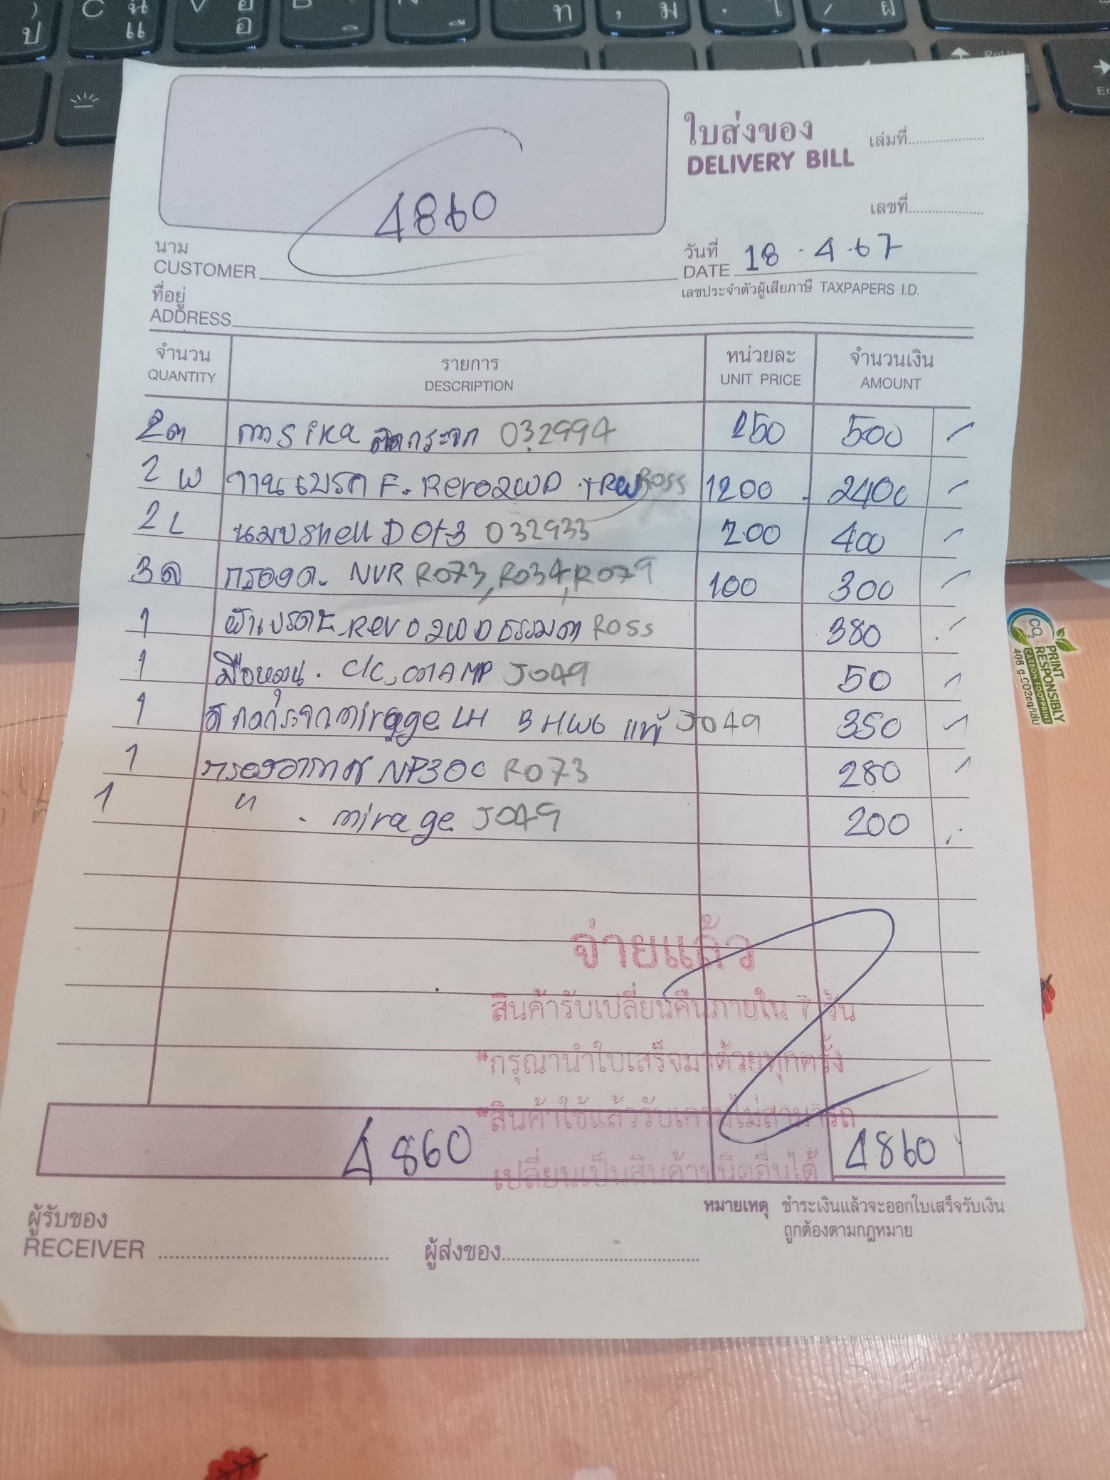 ใบส่งของ เล่มที่
DELIVERY BILL
4860
เลขที่
นาม
CUSTOMER
วันที่
DATE 18.4.67
เลขประจำตัวผู้เสียภาษี TAXPAPERS I.D.
ที่อยู่
ADDRESS
จำนวน รายการ หน่วยละ จำนวนเงิน
QUANTITY DESCRIPTION UNIT PRICE AMOUNT
2 กาว Sika ติดกระจก 032994 250 500
2 จานเบรค F. Revo2WD TRW 1200 2400
2L Shell Dot3 032933 200 400
3 กรอง NVR R073, R034, R079 100 300
1 ผ้าเบรค Revo 2WD ธรรมดา 380
1 มือหมุน J049 50
1 กระจก mirage LH แท้ J049 350
1 กรองอากาศ NP300 R073 280
1 " mirage J049 200
จ่ายแล้ว
สินค้ารับเปลี่ยนคืนภายใน 7 วัน
*กรุณานำใบเสร็จมาด้วยทุกครั้ง
*สินค้าใช้แล้วรับเคลมไม่สามารถ
เปลี่ยนเป็นสินค้าชนิดอื่นได้
4860 4860
หมายเหตุ ชำระเงินแล้วจะออกใบเสร็จรับเงิน
ถูกต้องตามกฎหมาย
ผู้รับของ
RECEIVER ผู้ส่งของ
CO2
PRINT
RESPONSIBLY
CARBON FOOTPRINT